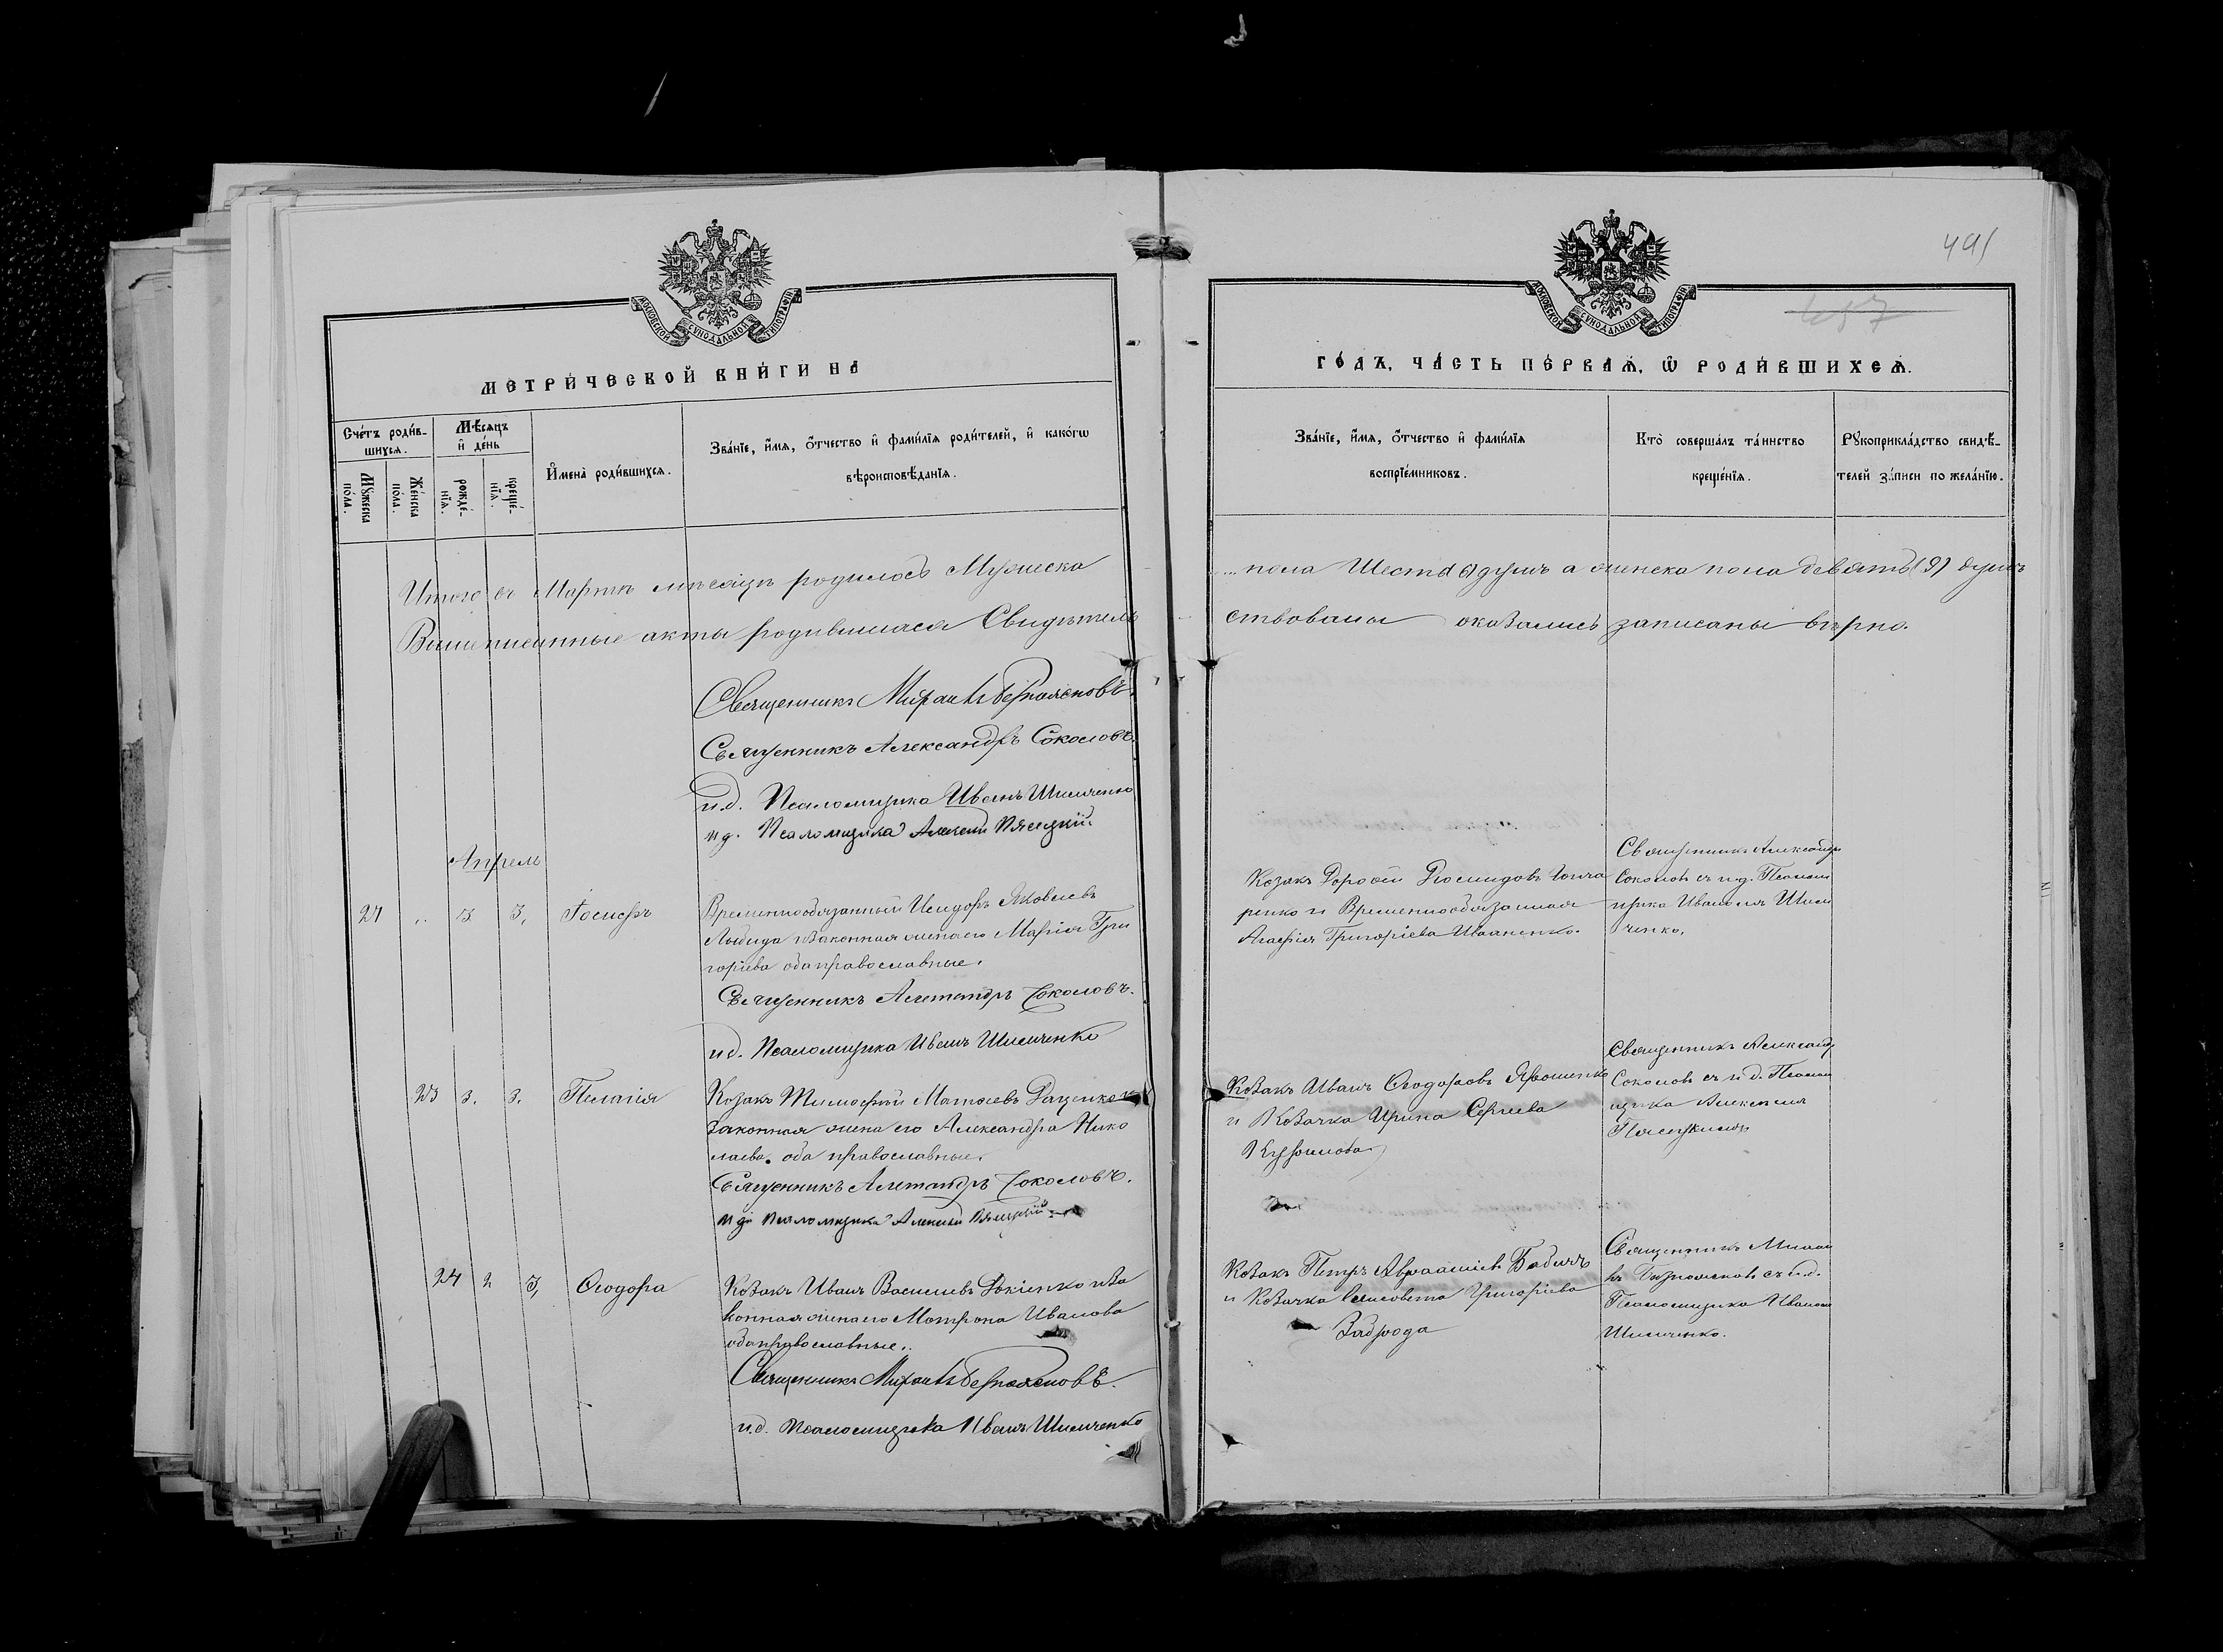 МОСКОВСКОЙ СУНОДАЛЬНОЙ ТИПОГРАФІИ
МЕТРИ́ЧЕСКОЙ КНИ́ГИ НА
Сче́тъ роди́в-
шихся.
Мѣ́сяцъ
и҆ де́нь
Мꙋ́жеска
по́ла.
Же́нска
по́ла.
рожде́-
нїѧ.
креще́-
нїѧ.
И҆мена̀ роди́вшихсѧ.
Зва́нїе, и҆́мѧ, ѻ҆́тчество и҆ фами́лїѧ роди́телей, и҆ како́гѡ
вѣроисповѣ́данїѧ.
Итого въ Мартѣ мѣсяцѣ родилось Мужеска
Вышеписанные акты родившихся Свидѣтель
Священникъ Михаилъ
Священникъ Александръ Соколовъ
и.д. Псаломщика Иванъ Шимченко
и д. Псаломщика Алексей
Апрель
24 „ 3 3, Іосифъ
Временнообязанный Исидоръ Яковлевъ
Лыбида и законная жена его Марія Гри
горіева оба православные.
Священникъ Александръ Соколовъ.
и.д. Псаломщика Иванъ Шимченко
23 3. 3. Пелагія
Козакъ Тимофей Матвеевъ Даценко и
законная жена его Александра Нико
лаева. оба православные.
Священникъ Александръ Соколовъ.
и д. Псаломщика Алексей
24 2 3, Ѳеодора
Козакъ Иванъ Васильевъ и за
конная жена его Матрона Иванова
оба православные.
Священникъ Михаилъ
и.д. Псаломщика Иванъ Шимченко
491
457
МОСКОВСКОЙ СУНОДАЛЬНОЙ ТИПОГРАФІИ
ГО́ДЪ, ЧА́СТЬ ПЕ́РВАѦ, Ѡ҆ РОДИ́ВШИХСѦ.
Зва́нїе, и҆́мѧ, ѻ҆́тчество и҆ фами́лїѧ
воспрїе́мниковъ.
Кто̀ соверша́лъ та́инство
креще́нїѧ.
Рꙋкоприкла́дство свидѣ́-
телей за́писи по жела́нїю.
пола Шесть (6) душъ а женска пола девять (9) душъ
ствованы оказались записаны вѣрно.
Козакъ Дорофей Гонча
ренко и Временнообязанная
Агафія Григоріева Иваненко.
Священникъ Александръ
Соколовъ съ и.д. Псалом
щика Иваномъ Шим
ченко.
Козакъ Иванъ Ѳеодоровъ Ярошенко
и Козачка Ирина Сергіева
Священникъ Александръ
Соколовъ съ и д. Псалом
щика Алексеемъ
Козакъ Петръ Авраамовъ Бабичъ
и Козачка Елисовета Григоріева
Заброда
Священникъ Михаи
лъ съ и.д.
Псаломщика Иваномъ
Шимченко.